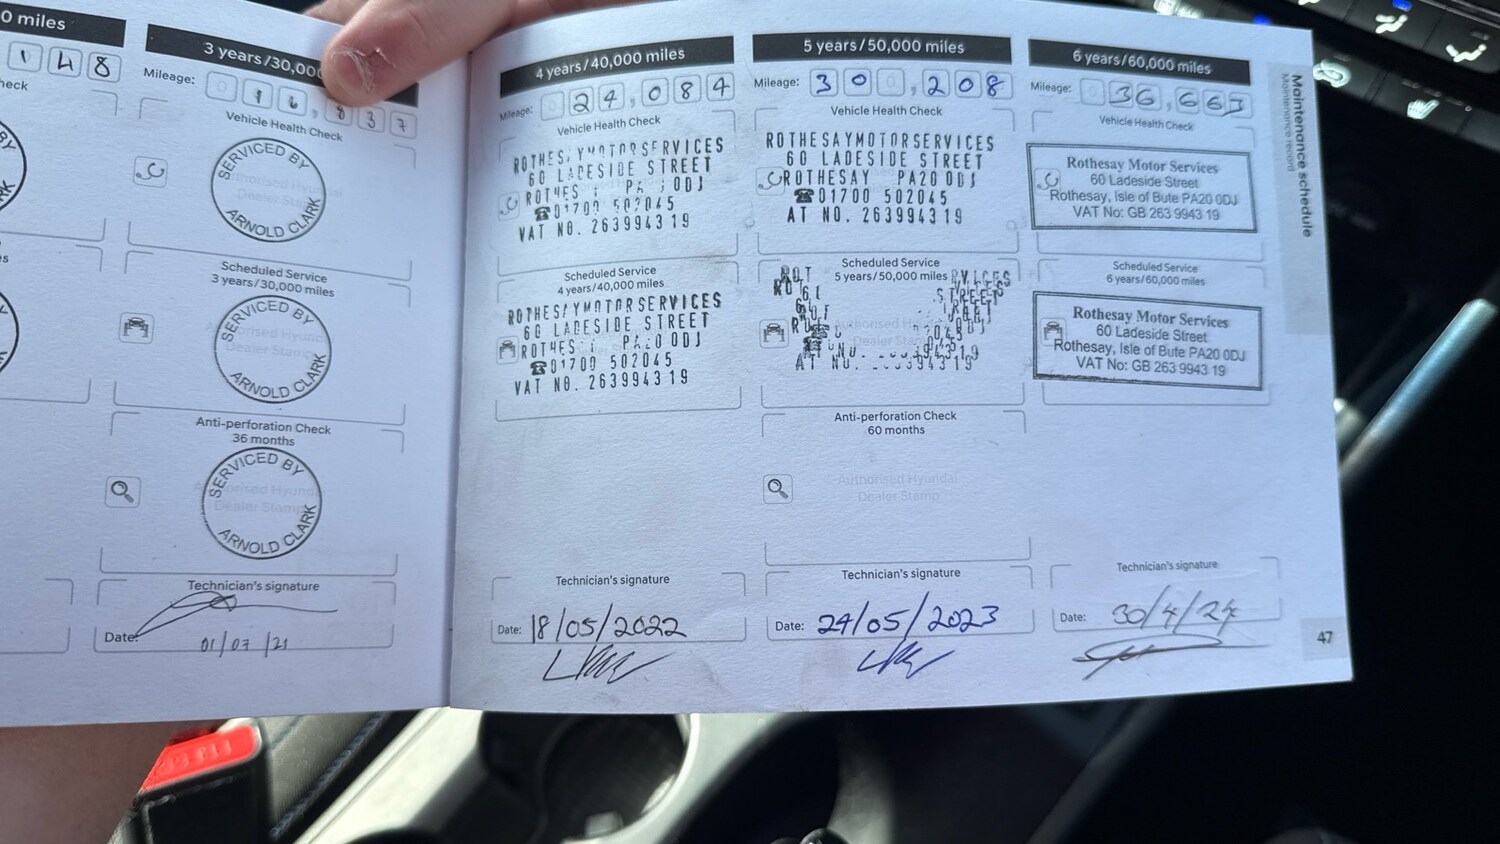 0 miles
148
heck
3 years/30,000
Mileage: 016,837
Vehicle Health Check
SERVICED BY
ARNOLD CLARK
Scheduled Service
3 years/30,000 miles
SERVICED BY
ARNOLD CLARK
Anti-perforation Check
36 months
SERVICED BY
ARNOLD CLARK
Technician's signature
Date: 01/07/21
4 years/40,000 miles
Mileage: 024,084
Vehicle Health Check
ROTHESAYMOTORSERVICES
60 LADESIDE STREET
ROTHES PA 0DJ
☎01700 502045
VAT NO. 263994319
Scheduled Service
4 years/40,000 miles
ROTHESAYMOTORSERVICES
60 LADESIDE STREET
ROTHES PA20 0DJ
☎01700 502045
VAT NO. 263994319
Technician's signature
Date: 18/05/2022
5 years/50,000 miles
Mileage: 300,208
Vehicle Health Check
ROTHESAYMOTORSERVICES
60 LADESIDE STREET
ROTHESAY PA20 0DJ
☎01700 502045
AT NO. 263994319
Scheduled Service
5 years/50,000 miles
Anti-perforation Check
60 months
Authorised Hyundai
Dealer Stamp
Technician's signature
Date: 24/05/2023
6 years/60,000 miles
Mileage: 036,663
Vehicle Health Check
Rothesay Motor Services
60 Ladeside Street
Rothesay, Isle of Bute PA20 0DJ
VAT No: GB 263 9943 19
Scheduled Service
6 years/60,000 miles
Rothesay Motor Services
60 Ladeside Street
Rothesay, Isle of Bute PA20 0DJ
VAT No: GB 263 9943 19
Technician's signature
Date: 30/4/24
Maintenance schedule
Maintenance record
47
PRESS